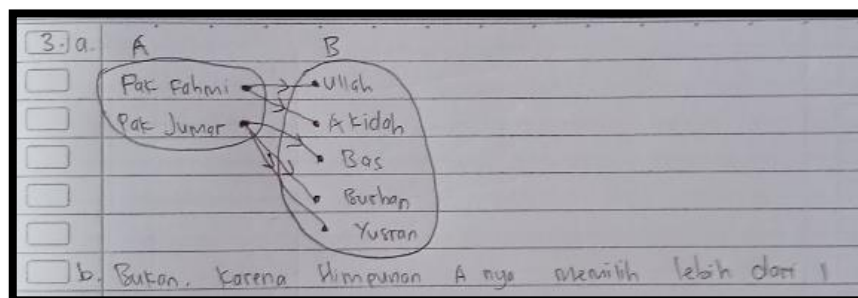 3. a. A B
Pak Fahmi Ullah
Pak Jumar Akidah
Bas
Burhan
Yusran
b. Bukan. Karena Himpunan A nya memilih lebih dari 1